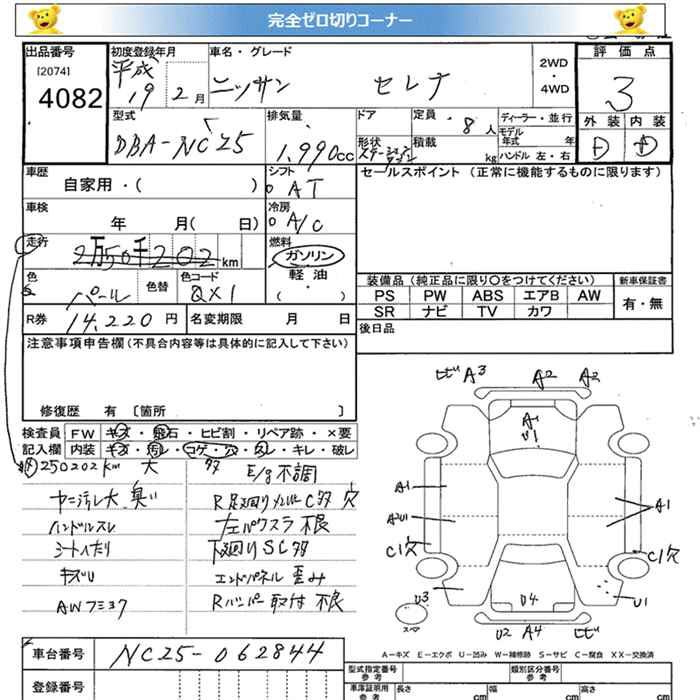 完全ゼロ切りコーナー
出品番号 初度登録年月 車名・グレード 2WD・4WD 評価点
[2074] 平成 19年 2月 ニッサン セレナ 3
4082
型式 排気量 ドア 定員 8人 ディーラー・並行 外装 内装
DBA-NC25 1,990cc 形状 積載 kg モデル年式 年 D D
ハンドル 左・右
車歴 シフト セールスポイント (正常に機能するものに限ります)
自家用・( ) AT
車検 冷房
年 月( 日) A/C
走行 2万50千202km 燃料
ガソリン
軽油
( )
色 色替 色コード
パール QX1
装備品 (純正品に限り〇をつけてください) 新車保証書
PS PW ABS エアB AW 有・無
SR ナビ TV カワ
R券 14,220円 名変期限 月 日 後日品
注意事項申告欄 (不具合内容等は具体的に記入して下さい)
修復歴 有 [箇所 ]
検査員 FW キズ・飛石・ヒビ割・リペア跡・×要
記入欄 内装 キズ・汚レ・コゲ・穴・スレ・キレ・破レ
250202km 大 多 E/g不調
ヤニ汚レ大 臭い R足廻りメンバーC多 穴
ハンドルスレ 左パワスラ不良
シートへたり 下廻りSC多
キズU エンドパネル歪み
AWフミコワ Rバンパー取付不良
ヒビA3 A2 A2
A1
U1
A1 A1
A2U1
C1穴 C1穴
U3 U4 U1
スペア U2 A4 ヒビ
A-キズ E-エクボ U-凹み W-補修跡 S-サビ C-腐食 XX-交換済
車台番号 NC25-062844
型式指定番号 類別区分番号
参考 参考
登録番号 車庫証明用 参考 長さ cm 幅 cm 高さ cm